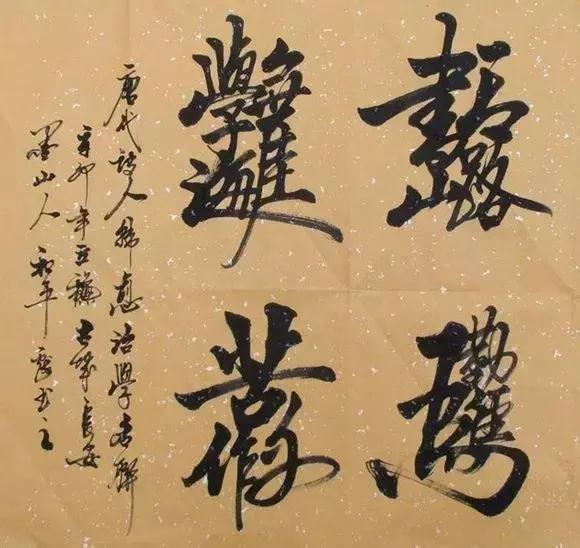 書山有路
勤為徑
學海無涯
苦作舟
唐代詩人韓愈治學名聯
辛卯年 長安
墨山人和平